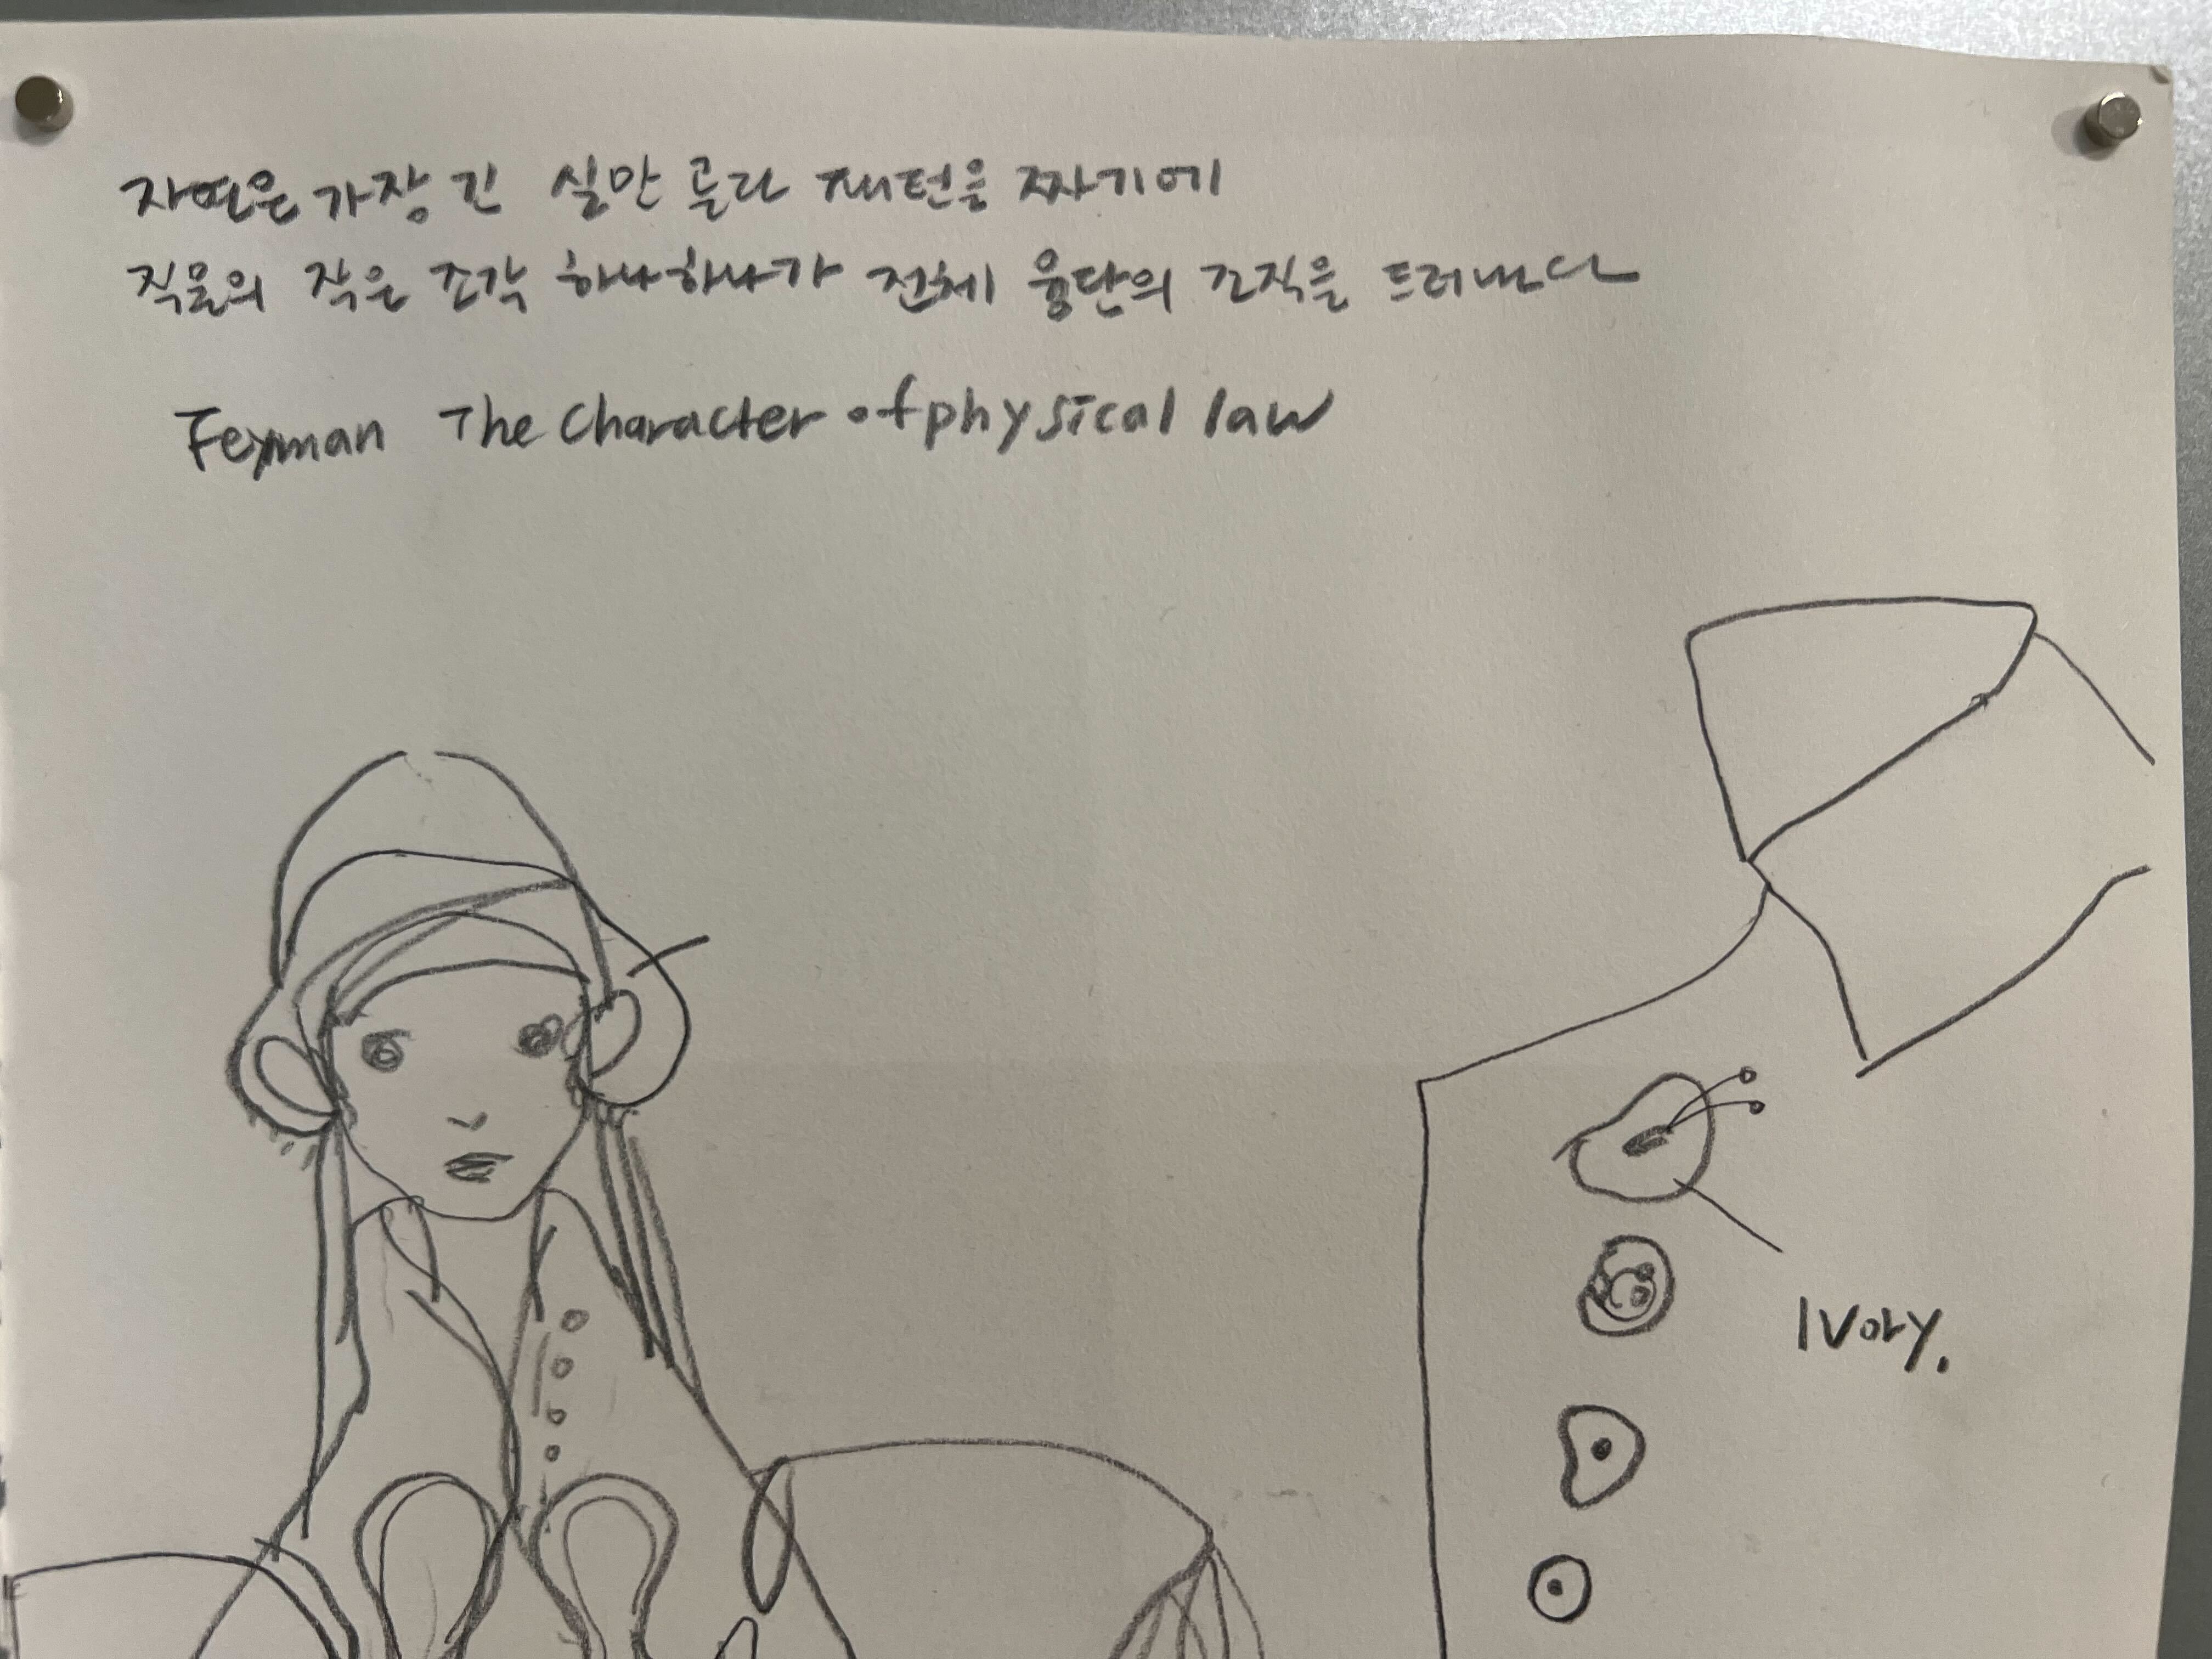 자연은 가장 긴 실만 골라 패턴을 짜기에
직물의 작은 조각 하나하나가 전체 융단의 조직을 드러낸다
Feynman The Character of physical law
Ivory.